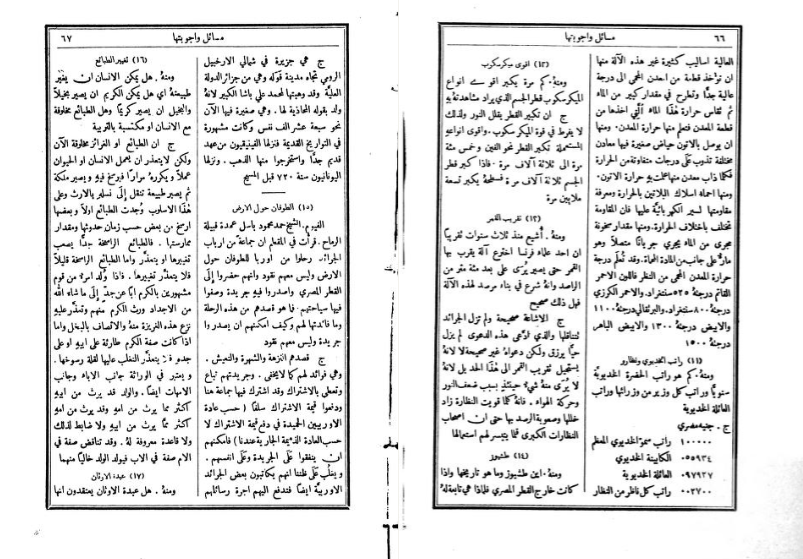 ٦٦
مسائل واجوبتها
العالية اساليب كثيرة غير هذه الآلة منها
ان تؤخذ قطعة من المعدن المحمى الى درجة
عالية جدًّا وتطرح في مقدار كبير من الماء
ثم تقاس حرارة هٰذا الماء التي اخذها من
قطعة المعدن فتعلم منها حرارة المعدن. ومنها
ان يوصل بالاتون حياض صغيرة فيها معادن
مختلفة تذوب على درجات متفاوتة من الحرارة
فكلما ذاب معدن منها علمت به حرارة الاتون.
ومنها احماء اسلاك البلاتين بالحرارة ومعرفة
مقاومتها لسير الكهربائية عليها فان المقاومة
تختلف باختلاف الحرارة. ومنها مقدار سخونة
مجرى من الماء يجري جريانًا متصلاً وهو
مارٌّ على جانب من المادة المحماة. وقد تُعلم درجة
حرارة المعدن المحمى من النظر فاللون الاحمر
القاتم درجته ٥٢٥ سنتغراد. والاحمر الكرزي
درجتهُ ٨٠٠ سنتغراد. والبرتقالي درجتهُ ١١٠٠
والابيض درجتهُ ١٣٠٠ والابيض الباهر
درجتهُ ١٥٠٠
(١١) راتب الخديوي ونظاره
ومنهُ. كم هو راتب الحضرة الخديويَّة
سنويًّا وراتب كل وزير من وزرائها وراتب
العائلة الخديوية
ج. جنيه مصري
١٠٠٠٠٠ راتب سموّ الخديوي المعظم
٠٥٥٩٣٤ الكابينة الخديوي
٠٩٧٩٣٧ العائلة الخديوية
٠٠٣٧٠٠ راتب كل ناظر من النظار
(١٢) اقوى ميكرسكوب
ومنهُ. كم مرة يكبر اقوى انواع
الميكرسكوب قطر الجسم الذي يراد مشاهدته به
ج ان تكبير القطر يقلل النور ولذلك
لا يفرط في قوة الميكرسكوب. واقوى انواعه
المستعملة يكبر القطر نحو الفين وخمس مئة
مرة الى ثلاثة آلاف مرة. فاذا كبر قطر
الجسم ثلاثة آلاف مرة فسطحه يكبر تسعة
ملايين مرة
(١٣) تقريب القمر
ومنهُ. أُشيع منذ ثلاث سنوات تقريبًا
ان احد علماء فرنسا اخترع آلة يقرب بها
القمر حتى يصير يُرَى على بعد مئة متر من
الراصد وانهُ شرع في بناء مرصد لهذه الآلة
فهل ذلك صحيح
ج الاشاعة صحيحة ولم تزل الجرائد
تتناقلها والذي ادَّعى هذه الدعوى لم يزل
حيًّا يرزق ولكن دعواهُ غير صحيحة لانهُ
يستحيل تقريب القمر الى هٰذا الحد بل لانهُ
لا يُرَى منهُ شيءٌ حينئذٍ بسبب ضعف النور
وحركة الهواء. فانهُ كلما قويت النظارة زاد
خللها وصعوبة الرصد بها حتى ان اصحاب
النظارات الكبرى قلما يتيسر لهم استعمالها
(١٤) طشيوز
ومنهُ. اين طشيوز وما هو تاريخها واذا
كانت خارج القطر المصري فلماذا هي تابعة لهُ
٦٧
مسائل واجوبتها
ج هي جزيرة في شمالي الارخبيل
الرومي تجاه مدينة قوله وهي من جزائر الدولة
العليَّة وقد وهبتها لمحمد علي باشا الكبير لانهُ
ولد بقوله المحاذية لها. وهي صغيرة فيها الآن
نحو سبعة عشر الف نفس وكانت مشهورة
في التواريخ القديمة فنزلها الفينيقيون من عهد
قديم جدًّا واستخرجوا منها الذهب. ونزلها
اليونانيون سنة ٧٢٠ قبل المسيح
(١٥) الطوفان حول الارض
الفيوم. الشيخ احمد محمود باسل عمدة قبيلة
الرماح. قرأت في المقطم ان جماعة من ارباب
الجرائد رحلوا من اوربا للطوفان حول
الارض وليس معهم نقود وانهم حضروا إلى
القطر المصري واصدروا فيهِ جريدة وصفوا
فيها سياحتهم. فما هو قصدهم من هذه الرحلة
وما فائدتها لهم وكيف امكنهم ان يصدروا
جريدة وليس معهم نقود
ج قصدهم النزهة والشهرة والتعيش.
وهي فوائد لهم كما لا يخفى. وجريدتهم تباع
وتعطى بالاشتراك وقد اشترك فيها جماعة هنا
ودفعوا قيمة الاشتراك سلفًا (حسب عادة
الاوربيين الحميدة في دفع قيمة الاشتراك لا
حسب العادة الذميمة الجارية عندنا) فامكنهم
ان ينفقوا على الجريدة وعلى انفسهم.
ويغلب على ظننا انهم يكاتبون بعض الجرائد
الاوربيَّة ايضًا فتدفع اليهم اجرة رسائلهم
(١٦) تغيير الطبائع
ومنهُ. هل يمكن الانسان ان يغيّر
طبيعتهُ اي هل يمكن الكريم ان يصير بخيلاً
والبخيل ان يصير كريمًا وهل الطبائع مخلوقة
مع الانسان او مكتسبة بالتربية
ج ان الطبائع او الغرائز مخلوقة الآن
ولكن لا يتعذر ان يعمل الانسان او الحيوان
عملاً ويكررهُ مرارًا فيرسخ فيهِ ويصير ملكة
ثم يصير طبيعة تنتقل إلى نسلهِ بالارث وعلى
هٰذا الاسلوب وُجدت الطبائع اولاً وبعضها
ارسخ من بعض حسب زمان حدوثها ومقدار
ممارستها. فالطبائع الراسخة جدًّا يصعب
تغييرها او يتعذَّر واما الطبائع الراسخة قليلاً
فلا يتعذَّر تغييرها. فاذا وُلد امرءٌ من قوم
مشهورين بالكرم ابًا عن جدٍّ إلى ما شاء الله
من الاجداد ورث الكرم منهم وتعذَّر عليهِ
نزع هذه الغريزة منهُ والاتصاف بالبخل واما
اذا كانت صفة الكرم طارئة على ابيهِ او على
جدهِ فلا يتعذَّر التغلب عليها لقلة رسوخها.
ويعتبر في الوراثة جانب الاباء وجانب
الامهات ايضًا. والولد قد يرث من ابيهِ
اكثر مما يرث من امهِ وقد يرث من امهِ
اكثر مما يرث من ابيهِ ولا ضابط لذلك
ولا قاعدة معروفة لهُ. وقد تناقض صفة في
الام صفة في الاب فيولد الولد خاليًا منهما
(١٧) عبدة الاوثان
ومنهُ. هل عبدة الاوثان يعتقدون انها